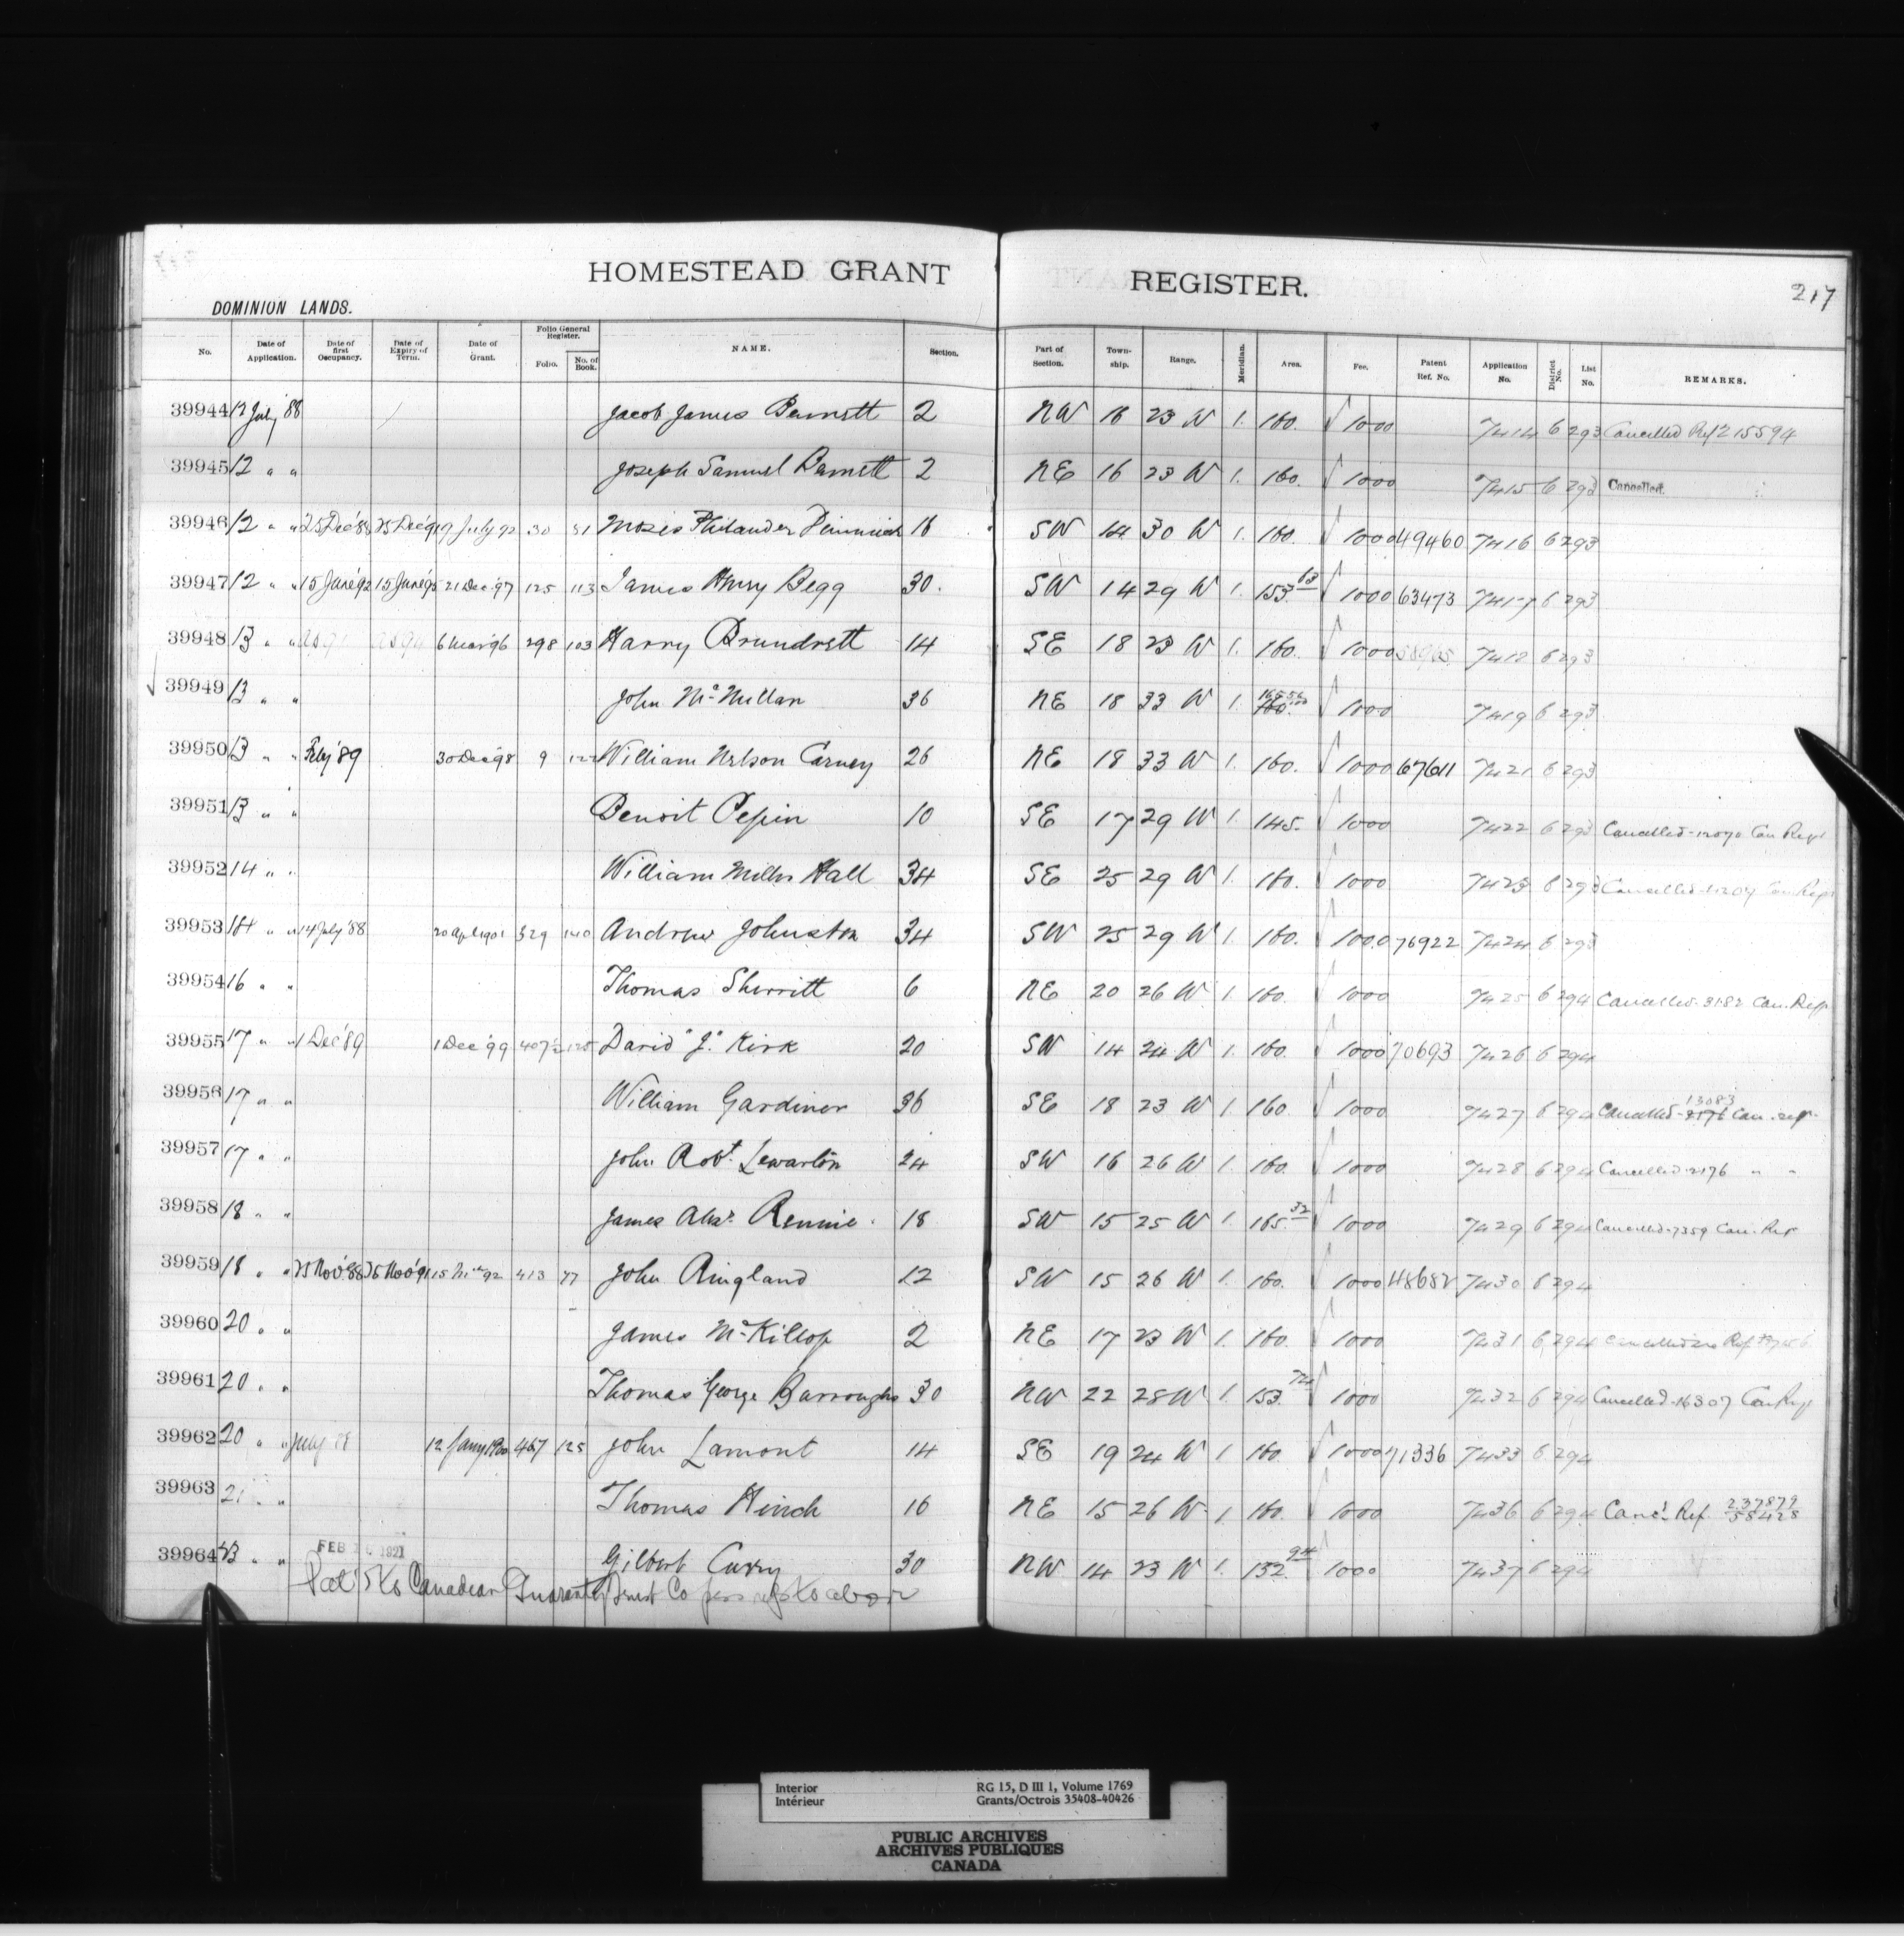 HOMESTEAD GRANT REGISTER. 217
DOMINION LANDS.
No. Date of Application. Date of first Occupancy. Date of Expiry of Term. Date of Grant. Folio General Register. Folio. No. of Book. NAME. Section. Part of Section. Town-ship. Range. Meridian. Area. Fee. Patent Ref. No. Application No. District No. List No. REMARKS.
39944 12 July '88 Jacob James Barnett 2 NW 16 23 W 1. 160. 1000 7414 6 293 Cancelled Ref 215594
39945 12 " " Joseph Samuel Barnett 2 NE 16 23 W 1. 160. 1000 7415 6 293 Cancelled.
39946 12 " " 25 Dec '88 25 Dec '91 19 July 92 30 81 Moses Philander 16 SW 14 30 W 1. 160. 1000 49460 7416 6 293
39947 12 " " 15 June '92 15 June '95 21 Dec '97 125 113 James Henry Begg 30. SW 14 29 W 1. 153.63 1000 63473 7417 6 293
39948 13 " " 6 Mar '96 298 103 Harry Brundrett 14 SE 18 23 W 1. 160. 1000 7418 6 293
39949 13 " " John McMillan 36 NE 18 33 W 1. 160. 1000 7419 6 293
39950 13 " " Feby '89 30 Dec '98 9 122 William Nelson Carney 26 NE 18 33 W 1. 160. 1000 67611 7421 6 293
39951 13 " " Benoit Pepin 10 SE 17 29 W 1. 145. 1000 7422 6 293 Cancelled - 12070 Can Regr
39952 14 " " William Miller Hall 34 SE 25 29 W 1. 160. 1000 7423 6 293 Cancelled Can Regr
39953 14 " " 14 July '88 20 Apl 1901 329 140 Andrew Johnston 34 SW 25 29 W 1. 160. 1000 76922 7424 6 293
39954 16 " " Thomas Sherritt 6 NE 20 26 W 1. 160. 1000 7425 6 294 Cancelled - 3182 Can. Regr
39955 17 " " 1 Dec '89 1 Dec '99 407½ 125 David "J." Kirk 20 SW 14 24 W 1. 160. 1000 70693 7426 6 294
39956 17 " " William Gardiner 36 SE 18 23 W 1. 160. 1000 7427 6 294 Cancelled - 13083 2176 Can. regr
39957 17 " " John Robt. Lewarton 24 SW 16 26 W 1. 160. 1000 7428 6 294 Cancelled - 2176 " "
39958 18 " " James Alexr. Rennie 18 SW 15 25 W 1. 165.32 1000 7429 6 294 Cancelled - 7359 Can. Rer
39959 18 " " 25 Nov '88 25 Nov '91 15 92 413 77 John Ringland 12 SW 15 26 W 1. 160. 1000 48682 7430 6 294
39960 20 " " James McKillop 2 NE 17 23 W 1. 160. 1000 7431 6 294 Cancelled Ref
39961 20 " " Thomas George Burroughs 30 NW 22 28 W 1. 153.74 1000 7432 6 294 Cancelled - 16307 Can Regr
39962 20 " " July 88 12 Jany 1900 467 125 John Lamont 14 SE 19 24 W 1 160. 1000 71336 7433 6 294
39963 21 " " Thomas Hinch 16 NE 15 26 W 1 160. 1000 7436 6 294 Canc'd Ref. 237879 58428
39964 23 " " FEB 1921 Gilbert Curry 30 NW 14 23 W 1. 152.94 1000 7437 6 294
Pat to Canadian Guaranty Trust Co
Interior RG 15, D III 1, Volume 1769
Intérieur Grants/Octrois 35408-40426
PUBLIC ARCHIVES
ARCHIVES PUBLIQUES
CANADA